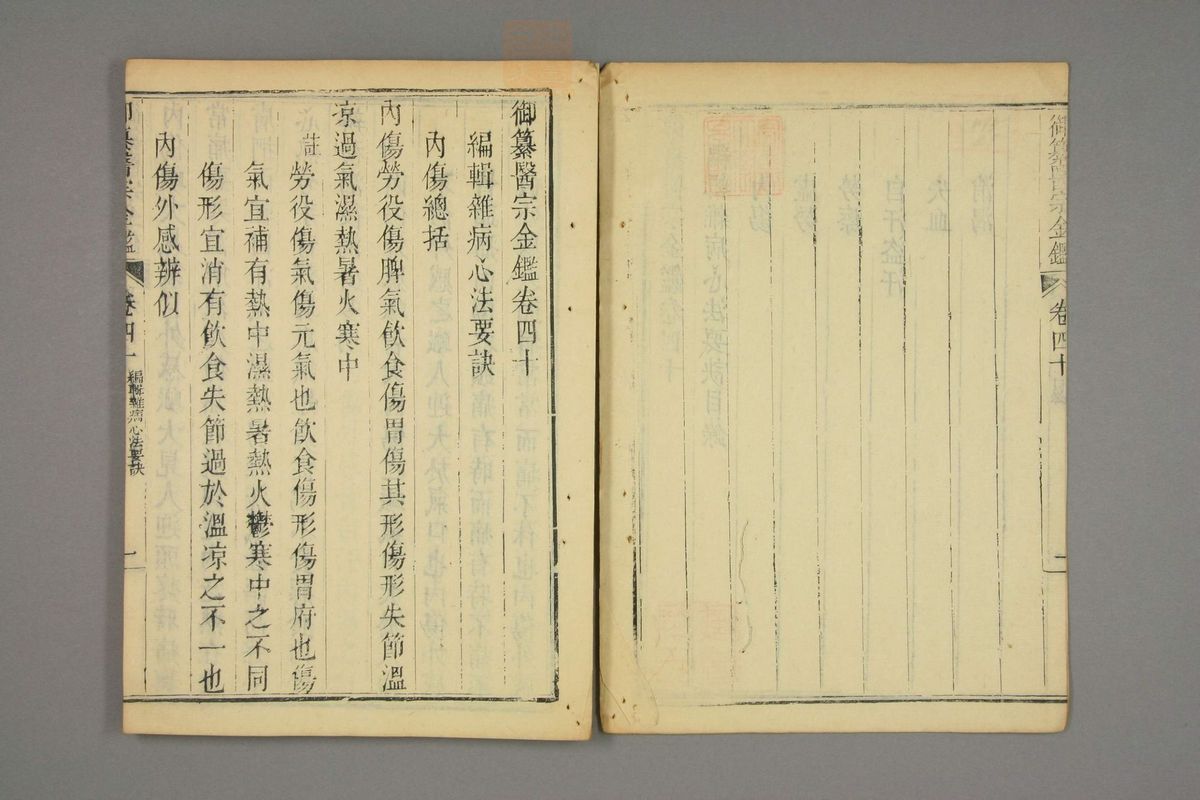 御纂醫宗金鑑
卷四十
御纂醫宗金鑑卷四十
編輯雜病心法要訣
內傷總括
內傷勞役傷脾氣飲食傷胃傷其形傷形失節溫
凉過氣濕熱暑火寒中
註
勞役傷氣傷元氣也飲食傷形傷胃府也傷
氣宜補有熱中濕熱暑熱火鬱寒中之不同
傷形宜消有飲食失節過於溫凉之不一也
內傷外感辨似
御纂醫宗金鑑
卷四十
編輯雜病心法要訣
一